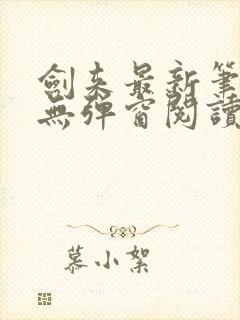 劍来最新筆
無彈窗閱讀
慕小絮